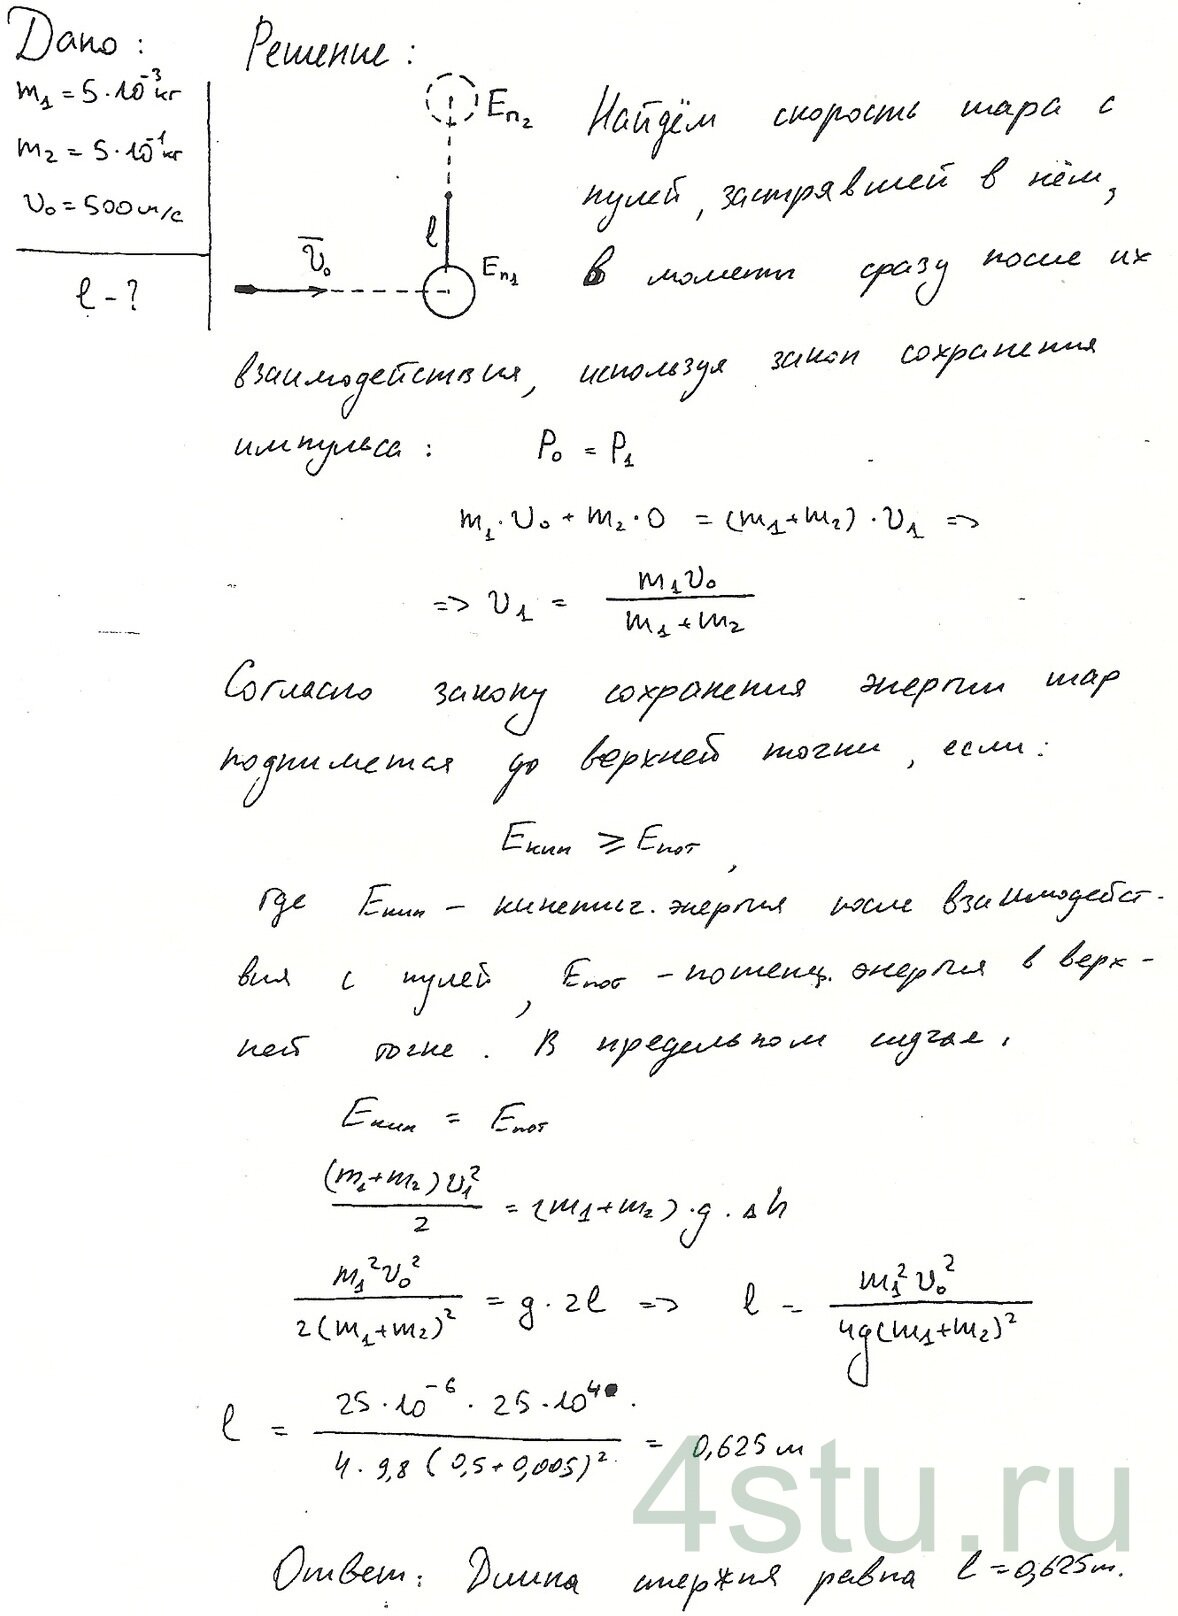 Дано:
m₁ = 5·10⁻³ кг
m₂ = 5·10⁻¹ кг
υ₀ = 500 м/с
l - ?
Решение:
Eп₂
l
υ̅₀
Eп₁
Найдём скорость шара с
пулей, застрявшей в нём,
в момент сразу после их
взаимодействия, используя закон сохранения
импульса: P₀ = P₁
m₁·υ₀ + m₂·0 = (m₁+m₂)·υ₁ =>
=> υ₁ = m₁υ₀ / (m₁+m₂)
Согласно закону сохранения энергии шар
поднимется до верхней точки, если:
Eкин ⩾ Eпот,
где Eкин – кинетич. энергия после взаимодейст-
вия с пулей, Eпот – потенц. энергия в верх-
ней точке. В предельном случае,
Eкин = Eпот
(m₁+m₂)υ₁² / 2 = (m₁+m₂)·g·Δh
m₁²υ₀² / 2(m₁+m₂)² = g·2l => l = m₁²υ₀² / 4g(m₁+m₂)²
l = 25·10⁻⁶·25·10⁴ / 4·9,8(0,5+0,005)² = 0,625 м
4stu.ru
Ответ: Длина стержня равна l = 0,625 м.